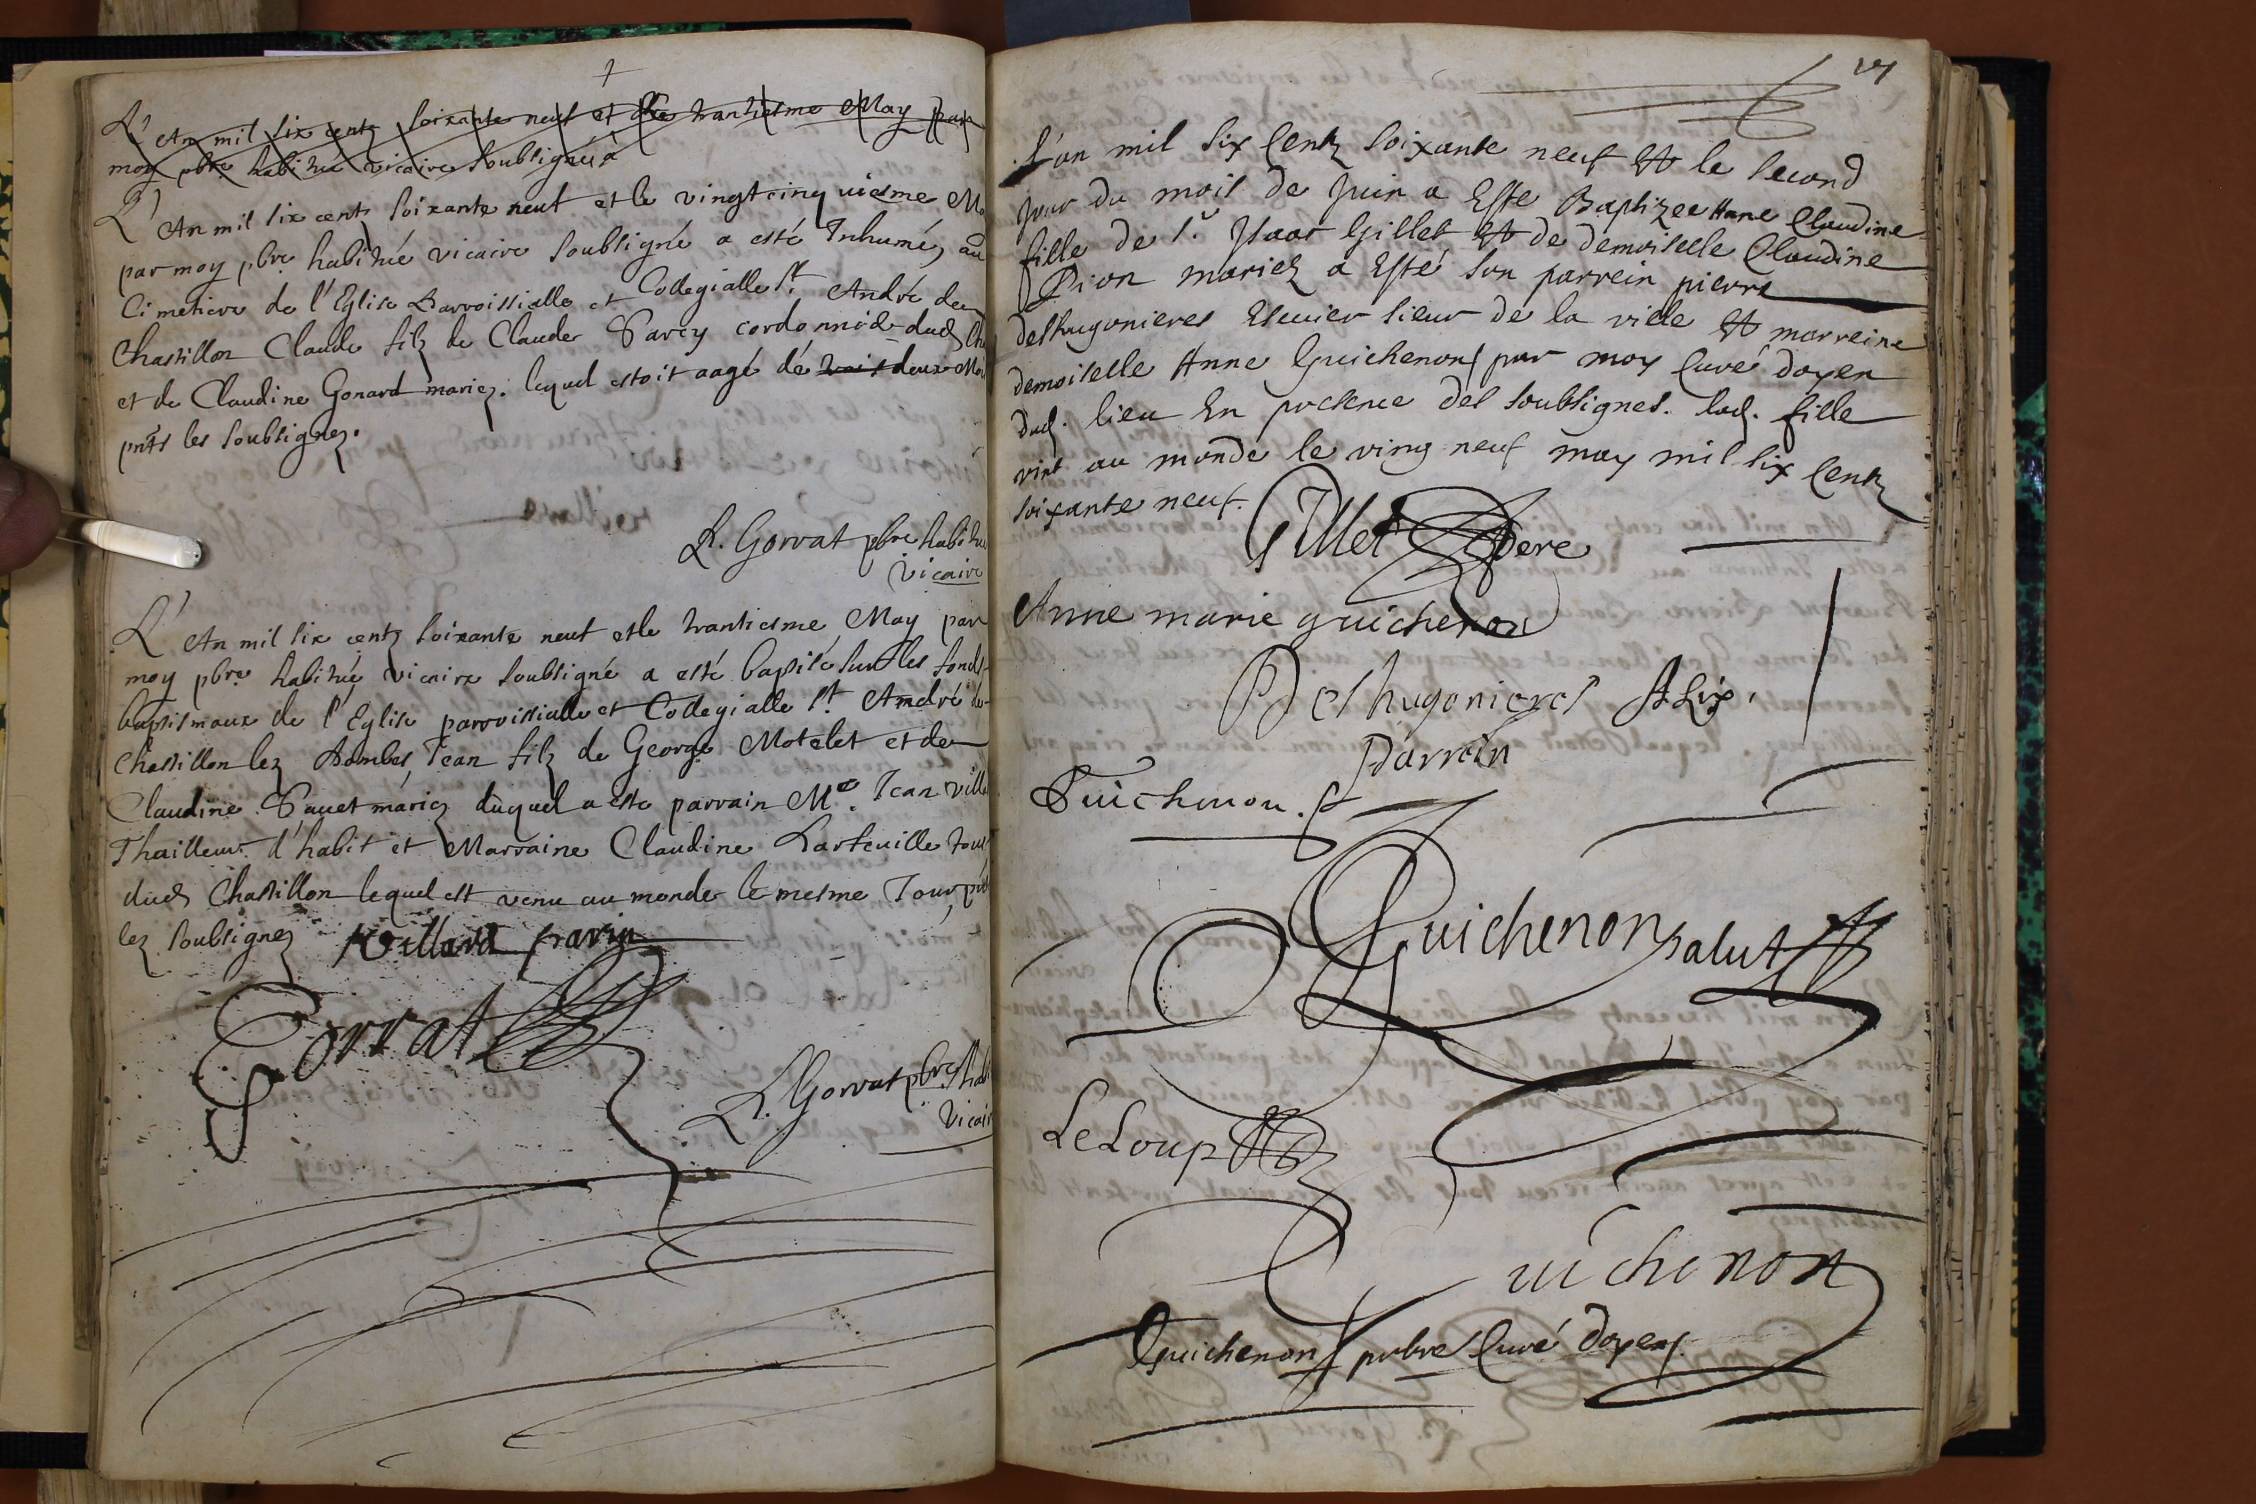 L'An mil six cents soixante neuf et le trantiesme May par
moy pbre habitué vicaire soubsigné à
L'An mil six cents soixante neuf et le vingtcinquiesme
par moy pbre habitué vicaire soubsigné a esté Inhumé, au
Cimetiere de l'Eglise Parroissialle et Collegialle St André de
Chastillon Claude filz de Claude cordonnier dud
et de Claudine Gonard mariez. lequel estoit aagé dé trois deux
pnts les soubsignez.
Gorvat pbre habitué
vicaire
L'An mil six cents soixante neuf et le trantiesme May par
moy pbre habitué, vicaire soubsigné a esté baptisé sur les fonds
baptismaux de l'Eglise parroissialle et Collegialle St. André de
Chastillon lez Dombes, Jean filz de George Motelet et de
Claudine mariez duquel a esté parrain Me. Jean
Thailleur d'habit et Marraine Claudine tous
dud Chastillon lequel est venu au monde le mesme Jour,
lez soubsignez
Gorvat
Gorvat pbre
vicaire
L'an mil six Centz soixante neuf et le second
Jour du mois de Juin a Esté Baptizee Anne Claudine
fille de Sr Isaac Gillet et de demoiselle Claudine
Pion mariez a Esté son parrein pierre
deshugonieres Escuier sieur de la ville et marreine
demoiselle Anne Guichenon par moy Curé doyen
dud. lieu En presence des soubsignes. lad. fille
vint au monde le ving neuf may mil six Centz
soixante neuf.
Gillet pere
Anne marie guichenon
Deshugonieres
Parrain
Guichenon.
Guichenon salut
LeLoup
Guichenon
Guichenon pbre Curé doyen